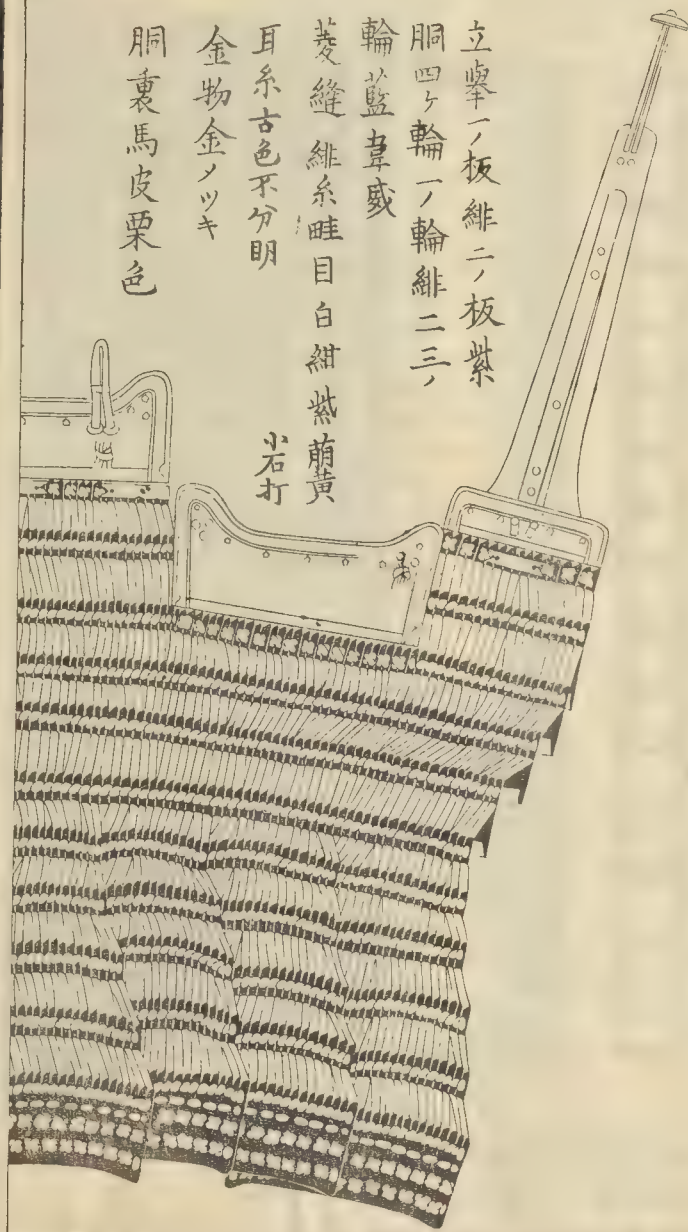 立擧一ノ板緋二ノ板紫
胴四ケ輪一ノ輪緋二三ノ
輪藍韋威
菱縫緋糸畦目白紺紫萠黄
耳糸古色不分明 小石打
金物金メツキ
胴裏馬皮栗色